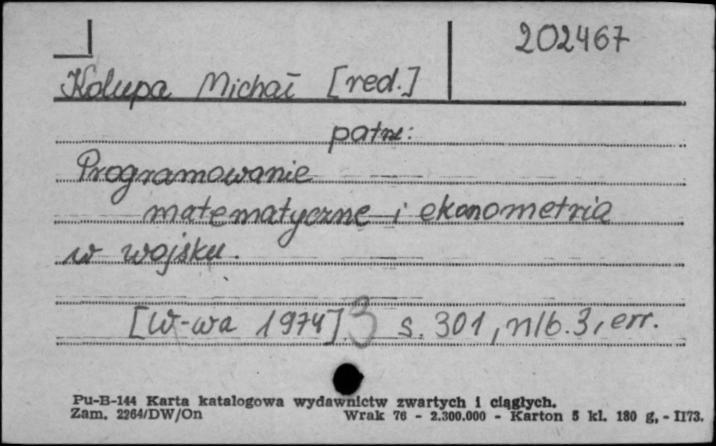 202467
Kolupa Michał [red.]
patrz:
Programowanie
matematyczne i ekonometria
w wojsku.
[W-wa 1974] 3 s. 301, nlb. 3, err.
Pu-B-144 Karta katalogowa wydawnictw zwartych i ciągłych.
Zam. 2264/DW/On Wrak 76 - 2.300.000 - Karton 5 kl. 180 g. - II73.